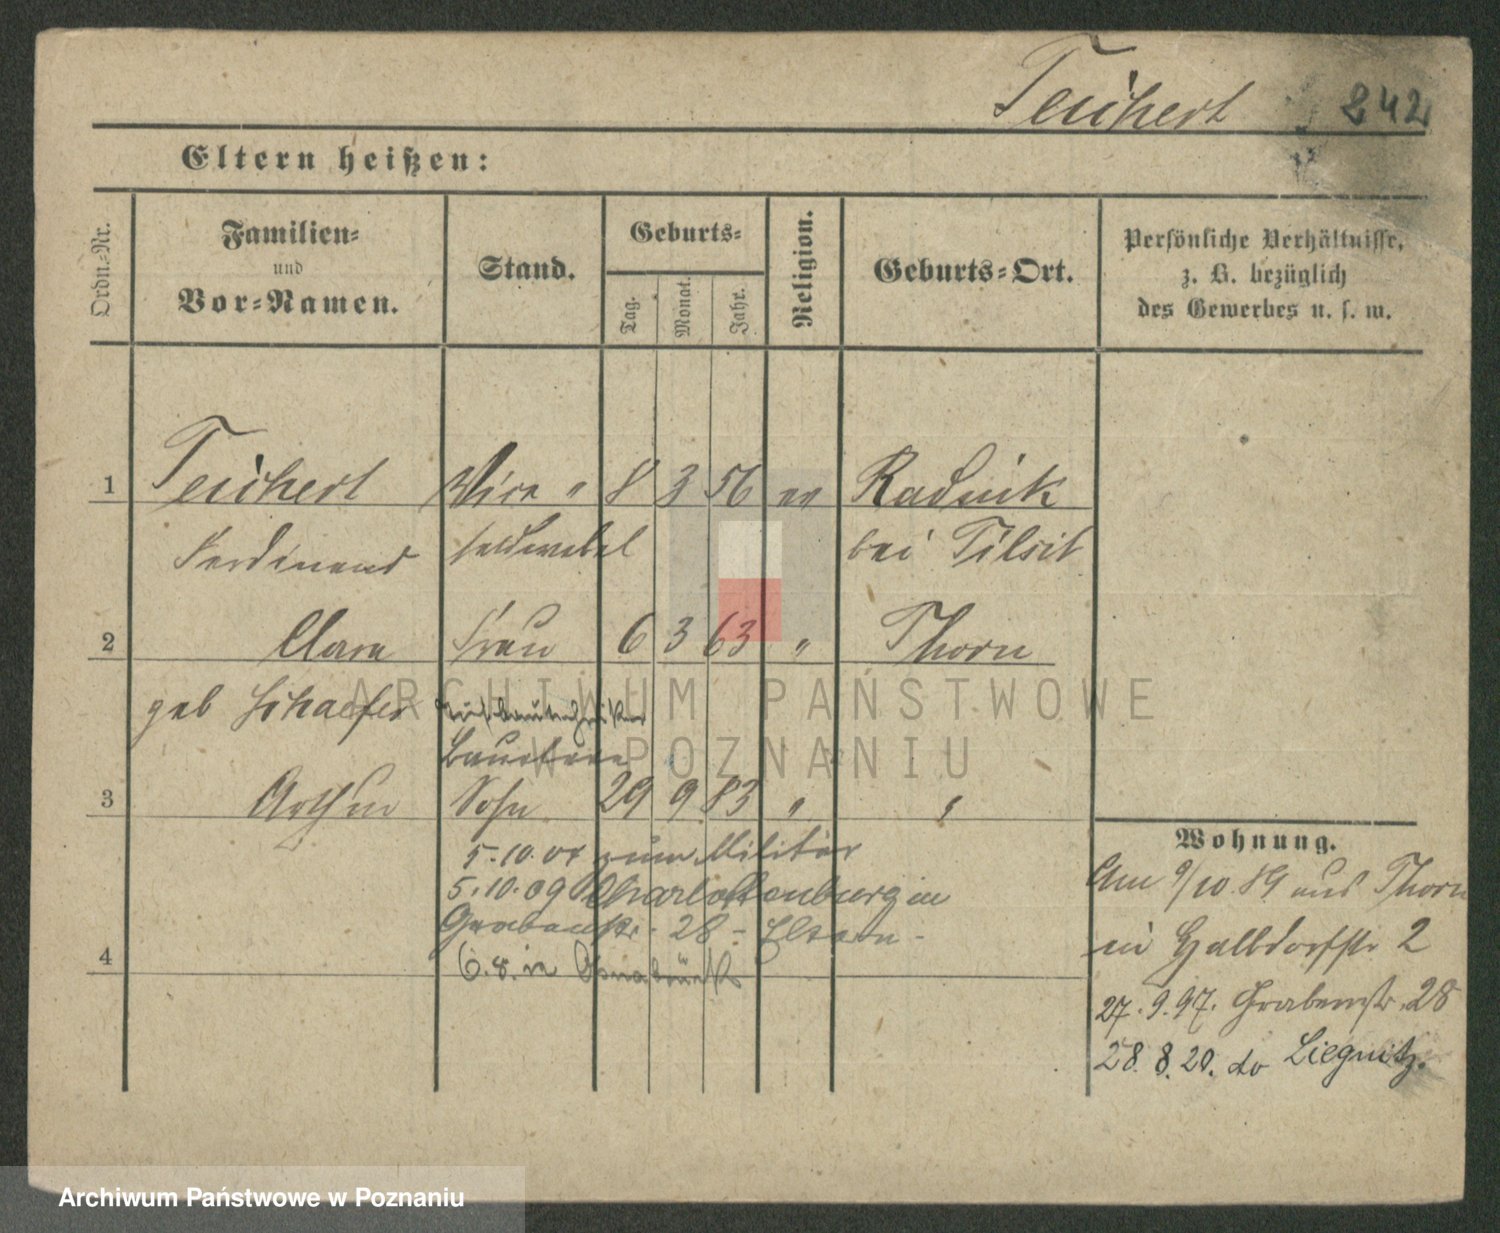 Teichert 242
Eltern heißen:
Ordn.-Nr.
Familien-
und
Vor-Namen.
Stand.
Geburts-
Tag.
Monat.
Jahr.
Religion.
Geburts-Ort.
Persönliche Verhältnisse,
z. B. bezüglich
des Gewerbes u. s. w.
1 Teichert Vice- 8 3 56 ev Radnik
Ferdinand feldwebel bei Tilsit
2 Clara Frau 6 3 63 " Thorn
geb Schaefer
3 Arthur Sohn 29 9 83 " "
5.10.04 zum Militär
5.10.09 Charlottenburg in
Grabenstr. 28 - Eltern -
4 6.8. in Osnabrück
Wohnung.
Am 9/10 89 aus Thorn
in Halbdorfstr 2
27.9.97. Grabenstr. 28
28.8.20. do Liegnitz.
ARCHIWUM PAŃSTWOWE
W POZNANIU
Archiwum Państwowe w Poznaniu